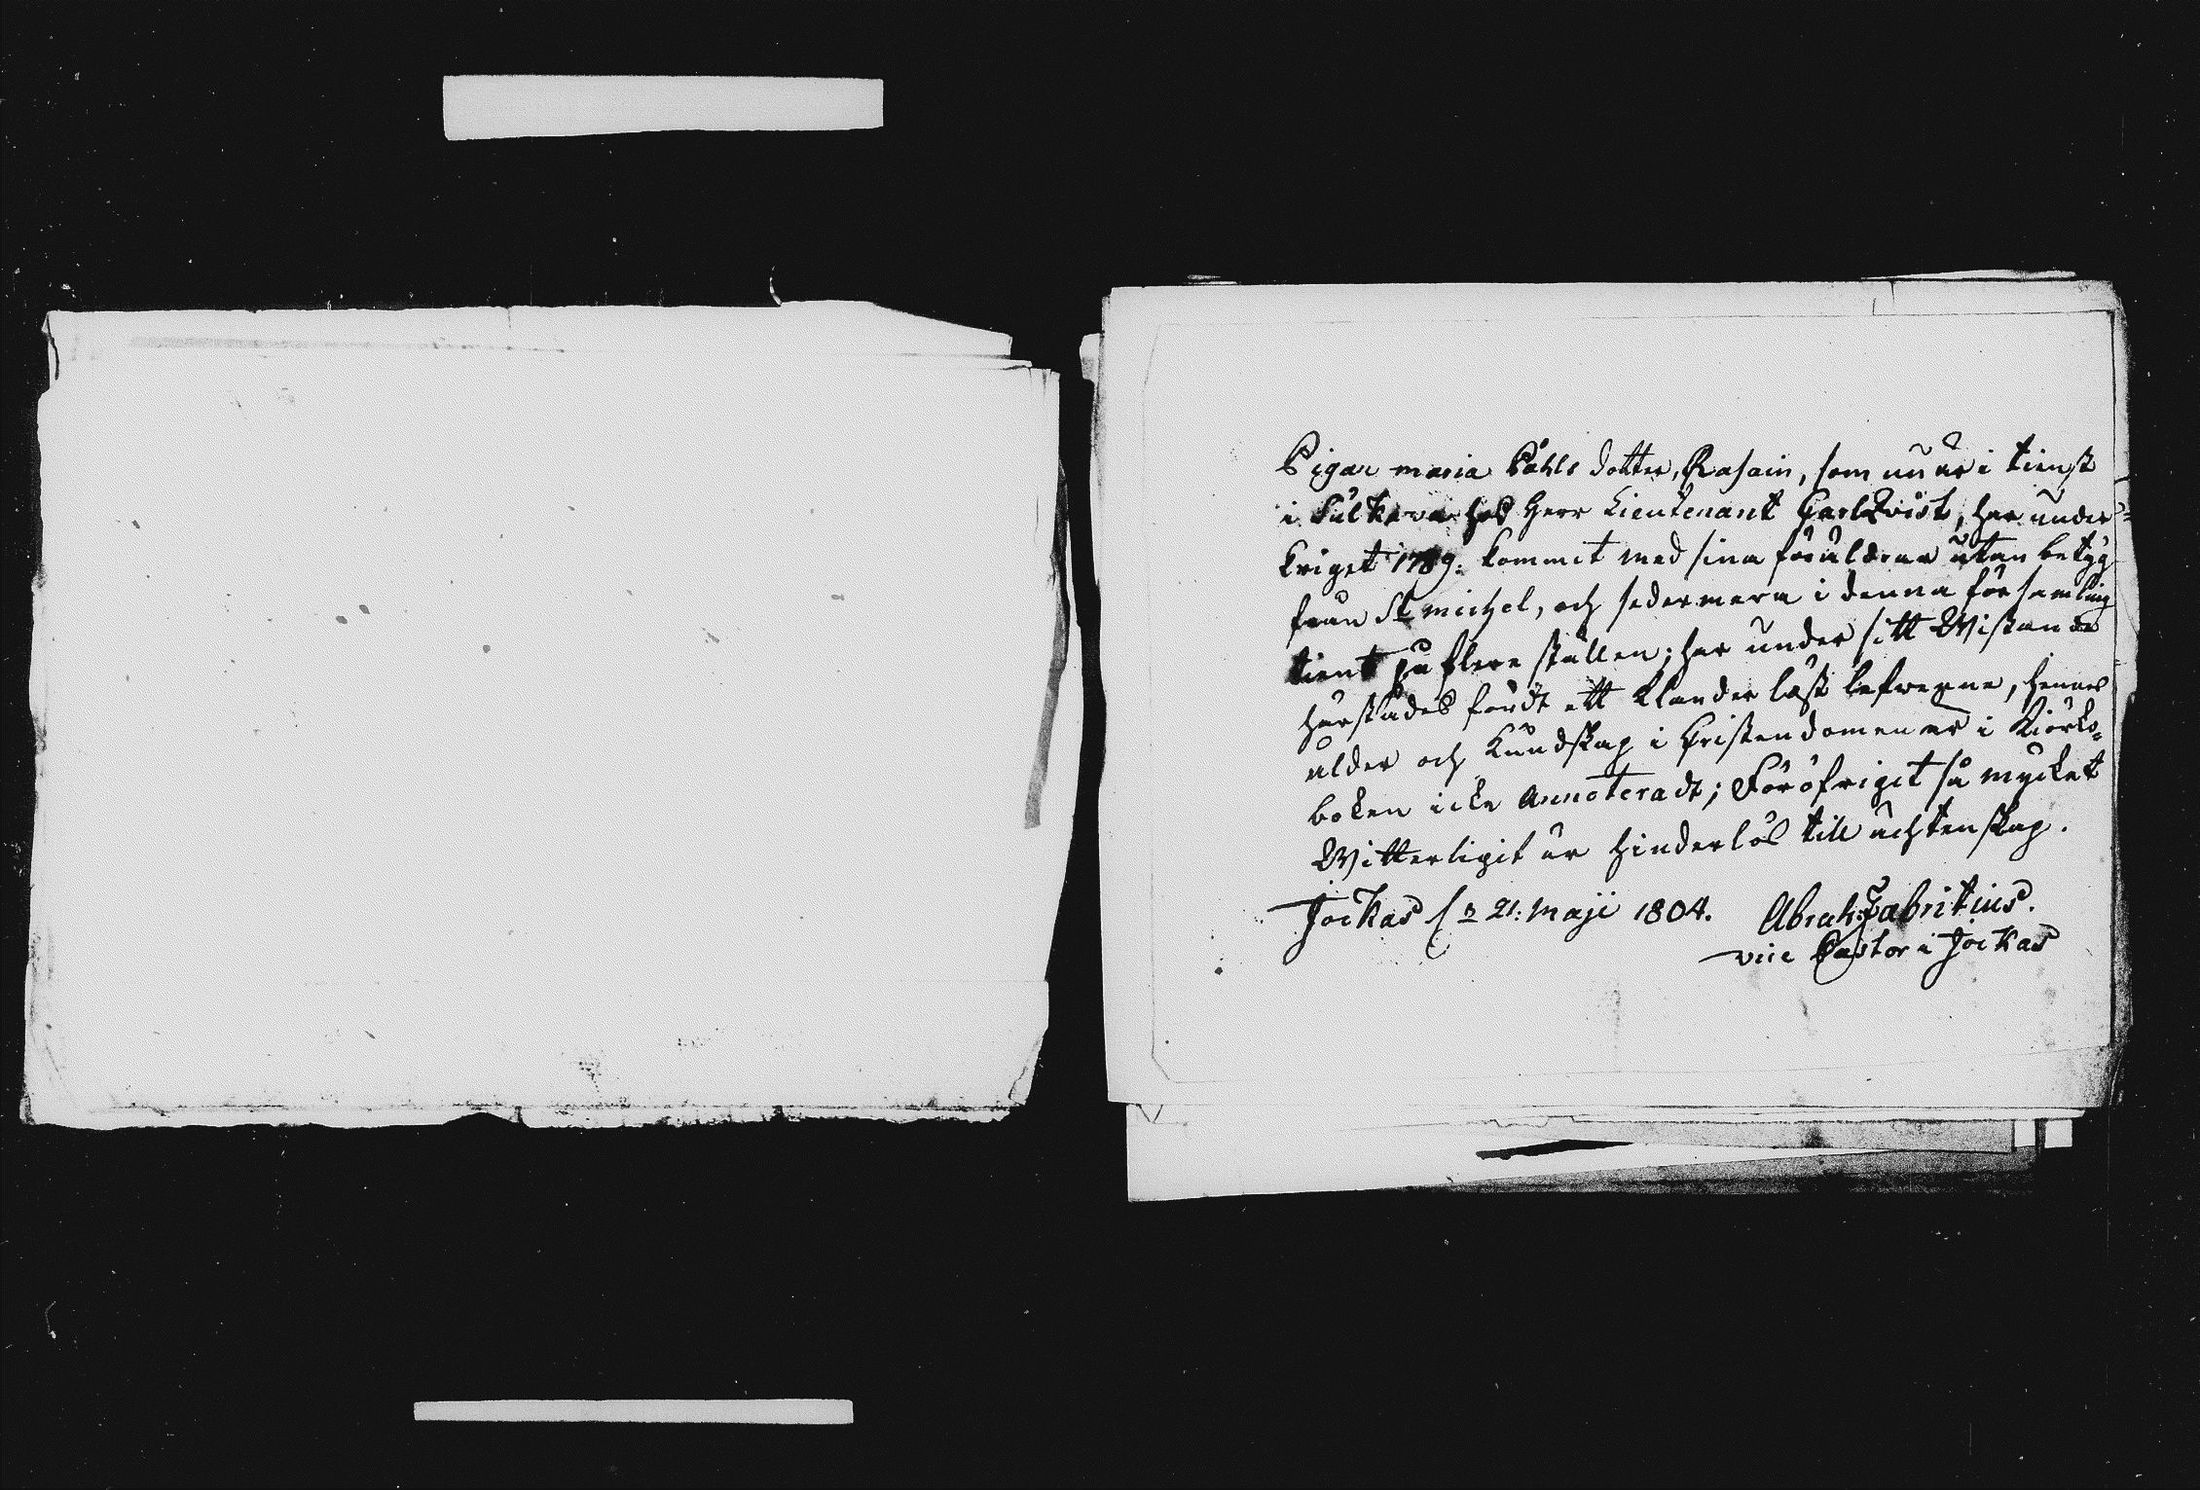 Pigan maria Påhls dotter, Rasain, som nu är i tienst
i Sulkava hos Herr Lieutenant Carlqvist, har under
kriget 1789. kommit med sina föräldrar utan betyg
från St michel, och sedermera i denna församling
tient på flere ställen; har under sitt Wistande
härstädes fördt ett klanderlöst lefwerne, hennes
ålder och kundskap i Christendomen är i Kiörko-
boken icke Annoteradt; Föröfrigit så mycket
Witterligit är hinderlös till ächtenskap.
Jockas d 21. Maji 1804. Abrah. Fabritius.
vice Pastor i Jockas